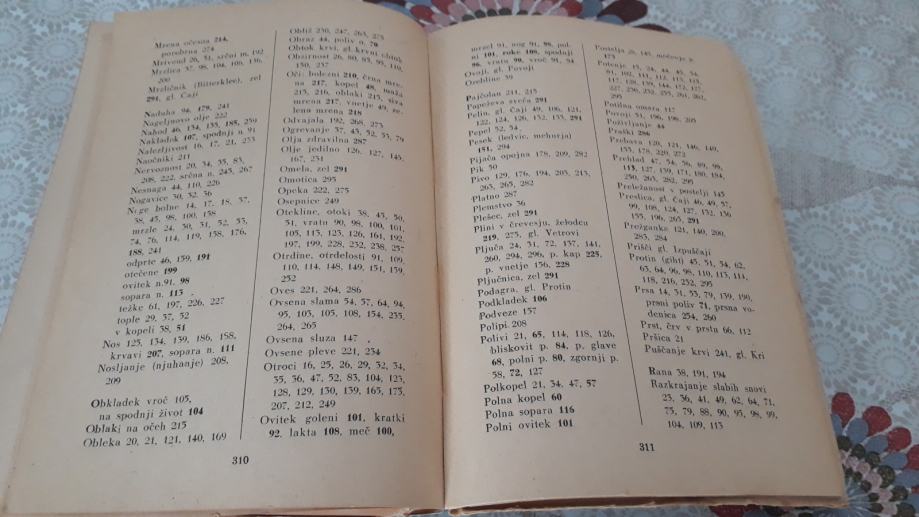 Mrena očesna 214,
porobrna 274
Mrtvoud 26, 51, srčni m. 192
Mrzlica 37, 98, 104, 106, 136,
200
Mrzličnik (Bitterklee), zel
291, gl. Čaji
Naduha 94, 179, 241
Nageljnovo olje 222
Nahod 46, 134, 135, 188, 259
Nakladek 107, spodnji n. 91
Nalezljivost 16, 17, 21, 253
Naočniki 211
Nervoznost 20, 34, 35, 83,
208, 222, srčna n. 245, 267
Nesnaga 44, 110, 226
Nogavice 30, 32, 36
Noge bolne 14, 17, 18, 37,
38, 45, 98, 100, 158
mrzle 24, 30, 31, 32, 53,
74, 76, 114, 119, 158, 176,
188, 241
odprte 46, 159, 191
otečene 199
ovitek n. 91, 98
sopara n. 113
težke 61, 197, 226, 227
tople 29, 37, 52
v kopeli 38, 51
Nos 125, 134, 139, 186, 158,
krvavi 207, sopara n. 111
Nosljanje (njuhanje) 208,
209
Obkladek vroč 105,
na spodnji život 104
Oblaki na očeh 215
Obleka 20, 21, 121, 140, 169
310
Obliž 230, 247, 263, 275
Obraz 44, poliv n. 70
Obtok krvi, gl. krvni obtok
Obzirnost 26, 80, 83, 95, 110,
150, 257
Oči: bolezni 210, črna mre-
na 217, kopel 48, maža
213, 216, oblaki 215, siva
mrena 217, vnetje 49, ze-
lena mrena 218
Odvajala 192, 268, 273
Ogrevanje 37, 43, 52, 53, 79
Olja zdravilna 287
Olje jedilno 126, 127, 145,
167, 231
Omela, zel 291
Omotica 295
Opeka 222, 275
Osepnice 249
Otekline, otoki 38, 45, 50,
51, vratu 90, 98, 100, 161,
105, 113, 123, 126, 161, 192,
197, 199, 228, 232, 238, 257
Otrdine, otrdelosti 91, 109
110, 114, 148, 149, 151, 159,
252
Oves 221, 264, 286
Ovsena slama 54, 57, 64, 94,
95, 103, 105, 108, 154, 235,
264, 265
Ovsena sluza 147
Ovsene pleve 221, 234
Otroci 16, 25, 26, 29, 32, 34,
35, 36, 47, 52, 83, 104, 123,
128, 129, 130, 139, 165, 173,
207, 212, 249
Ovitek goleni 101, kratki
92, lakta 108, meč 100,
mrzel 91, nog 91, 98, pol-
ni 101, roke 108, spodnji
96, vratu 90, vroč 91, 94
Ovoji, gl. Povoji
Ozebline 39
Pajčolan 211, 215
Popeževa sveča 291
Pelin, gl. Čaji 49, 106, 121,
122, 124, 126, 132, 133, 291
Pepel 52, 54
Pesek (ledvic, mehurja)
151, 294
Pijača opojna 178, 209, 282
Pik 50
Pivo 129, 176, 194, 203, 213,
263, 265, 282
Platno 287
Plemstvo 36
Plešec, zel 291
Plini v črevesju, želodcu
219, 273, gl. Vetrovi
Pljuča 24, 31, 72, 137, 141,
260, 294, 296, p. kap 225,
p. vnetje 156, 228
Pljučnica, zel 291
Podagra, gl. Protin
Podkladek 106
Podveze 157
Polipi 208
Polivi 21, 65, 114, 118, 126,
bliskovit p. 84, p. glave
68, polni p. 80, zgornji p.
58, 72, 127
Polkopel 21, 34, 47, 57
Polna kopel 60
Polna sopara 116
Polni ovitek 101
Postelja 28, 145, močenje p.
173
Potenje 15, 24, 44, 45, 54,
91, 102, 111, 112, 113, 115,
117, 128, 139, 144, 172, 127,
227, 230, 232, 233, 261, 261,
295
Potilna omara 117
Povoji 51, 196, 198, 203
Poživljanje 44
Praški 286
Prebava 120, 121, 146, 149,
155, 178, 220, 272
Prehlad 47, 54, 56, 89, 98,
113, 127, 139, 171, 180, 194,
250, 265, 282, 295
Preležanost v postelji 145
Preslica, gl. Čaji 46, 49, 57,
99, 108, 124, 127, 132, 136
155, 196, 265, 291
Prežganke 121, 140, 200,
283, 284
Prišči gl. Izpuščaji
Protin (giht) 45, 51, 54, 62,
63, 64, 96, 98, 110, 113, 114,
118, 216, 232, 295
Prsa 14, 51, 53, 79, 139, 190,
prsni poliv 71, prsna vo-
denica 254, 260
Prst, črv v prstu 66, 112
Pršica 21
Puščanje krvi 241, gl. Kri
Rana 38, 191, 194
Razkrajanje slabih snovi
23, 36, 41, 49, 62, 64, 71,
75, 79, 88, 90, 95, 98, 99,
104, 109, 113
311